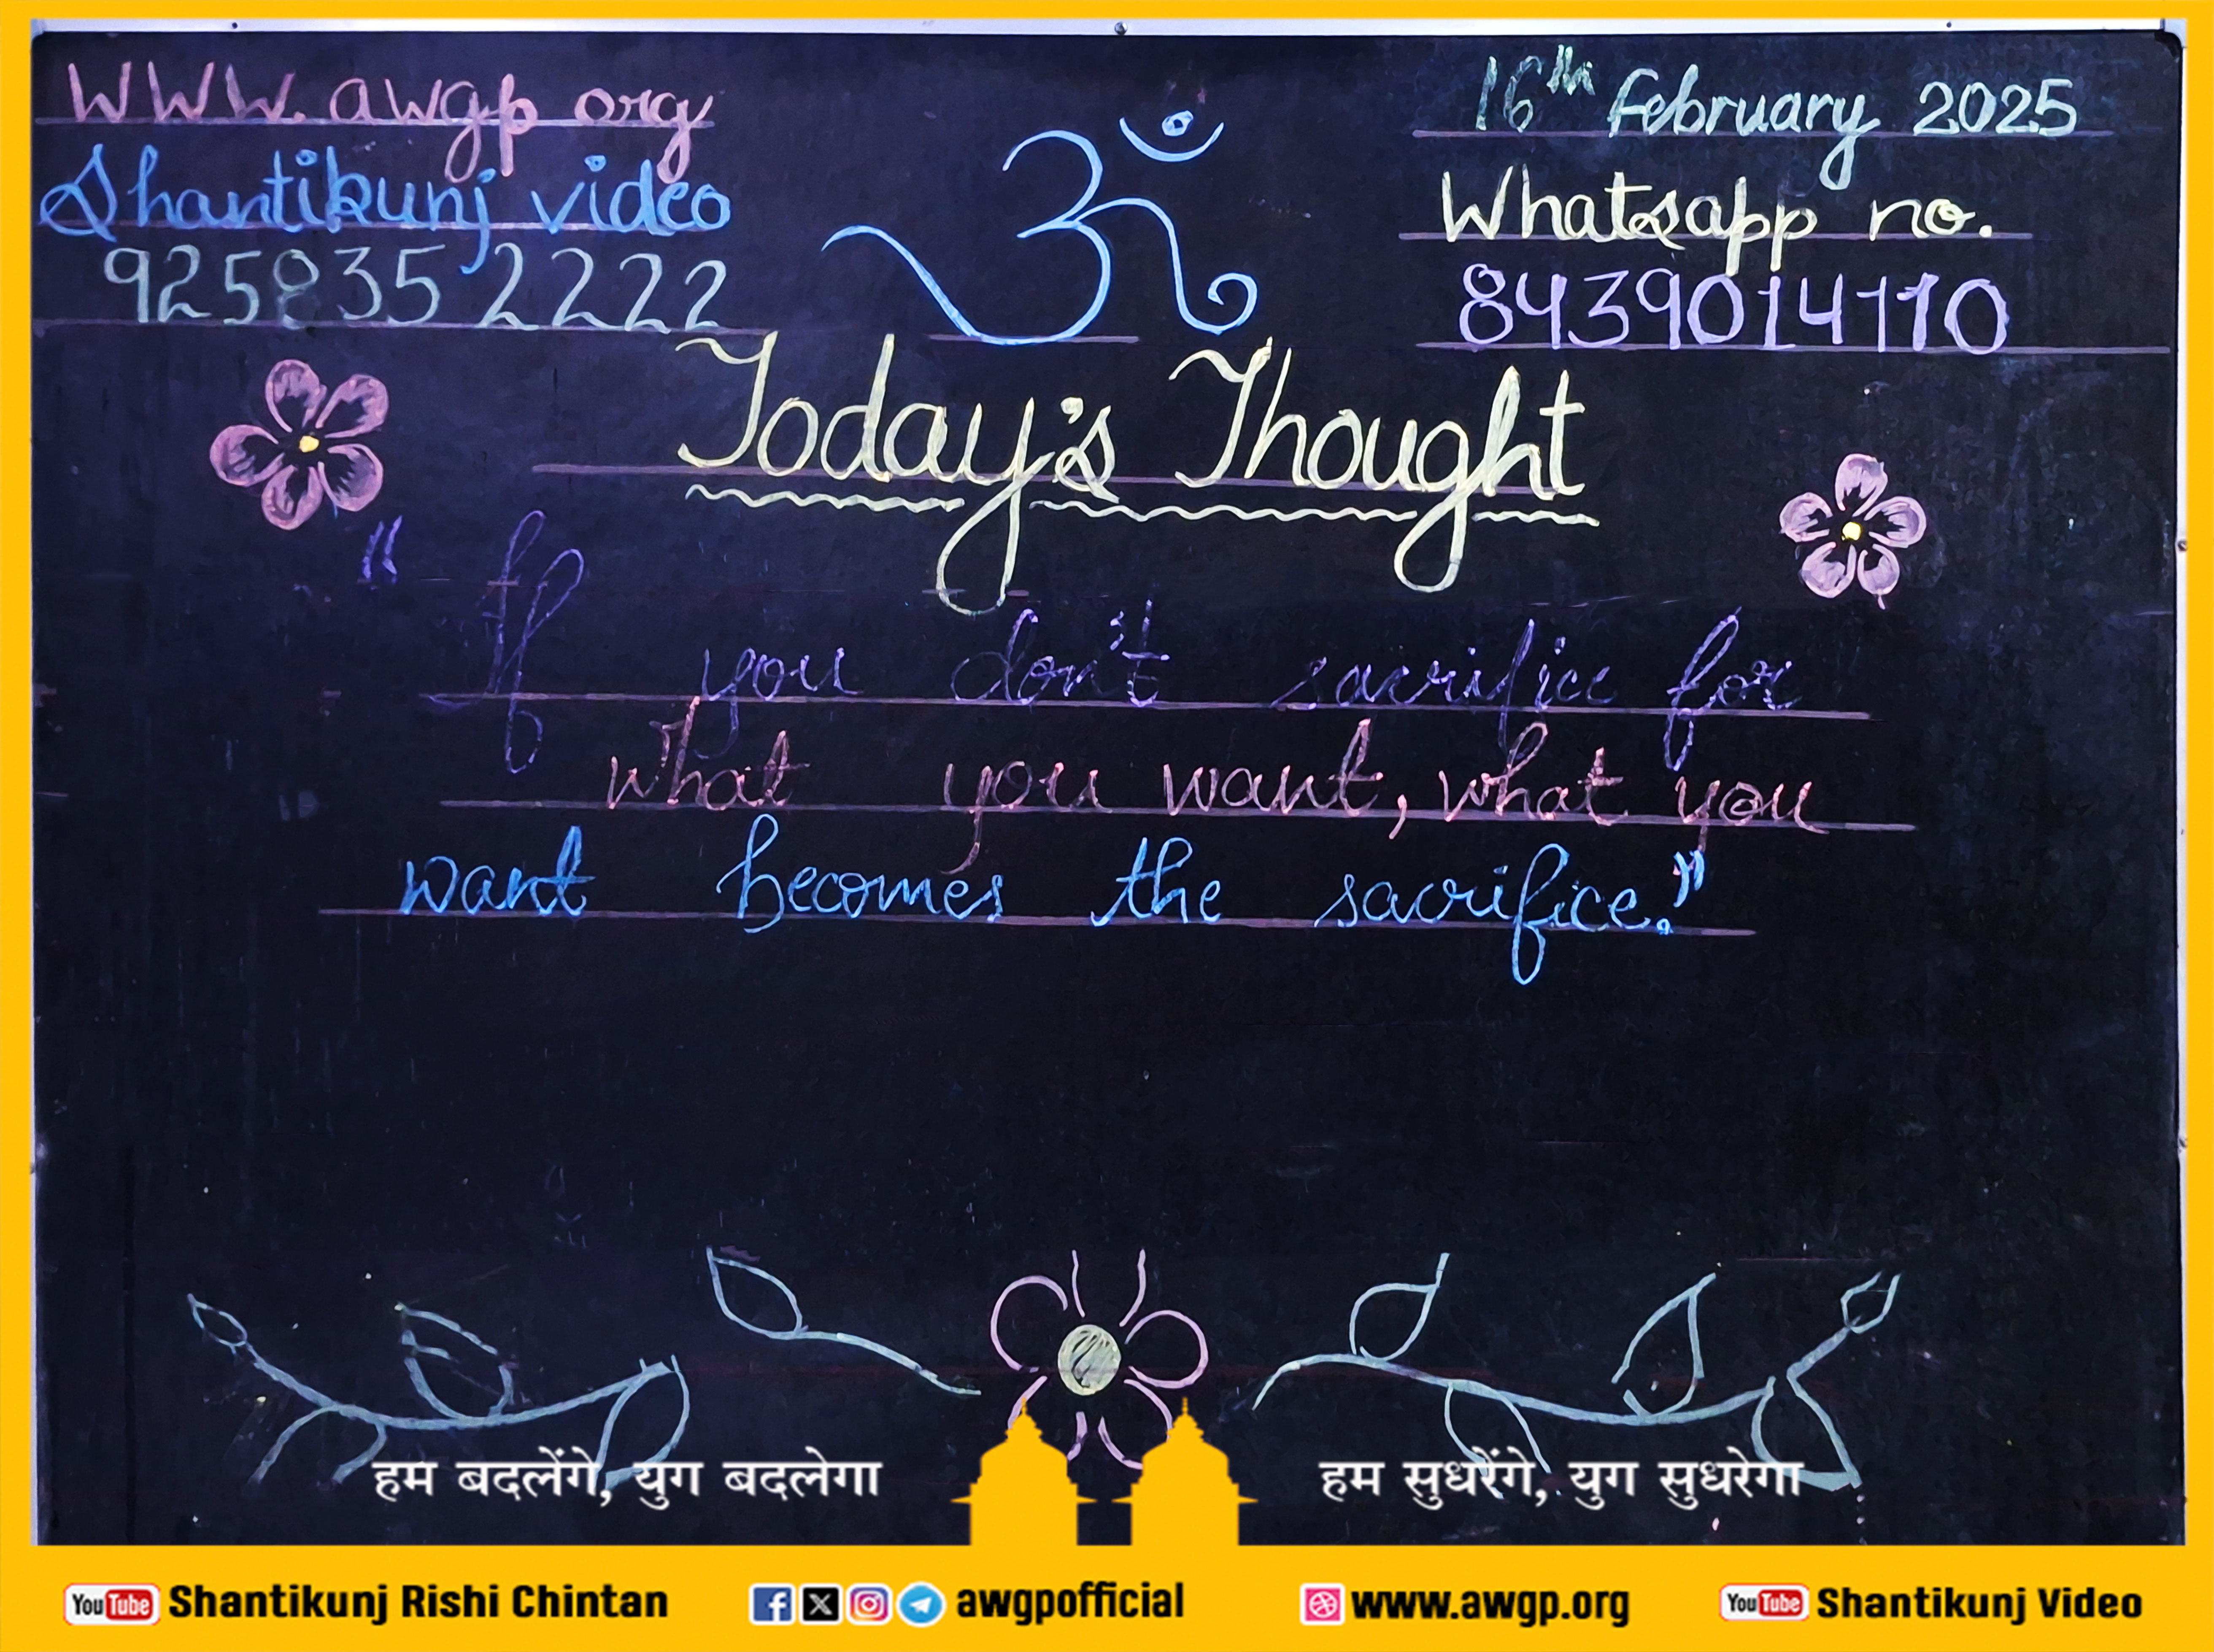 WWW. awgp org
Shantikunj video
925835 2222
ॐ
16th February 2025
Whatsapp no.
8439014110
Today's Thought
“ If you don't sacrifice for
what you want, what you
want becomes the sacrifice.”
हम बदलेंगे, युग बदलेगा
हम सुधरेंगे, युग सुधरेगा
YouTube Shantikunj Rishi Chintan
awgpofficial
www.awgp.org
YouTube Shantikunj Video